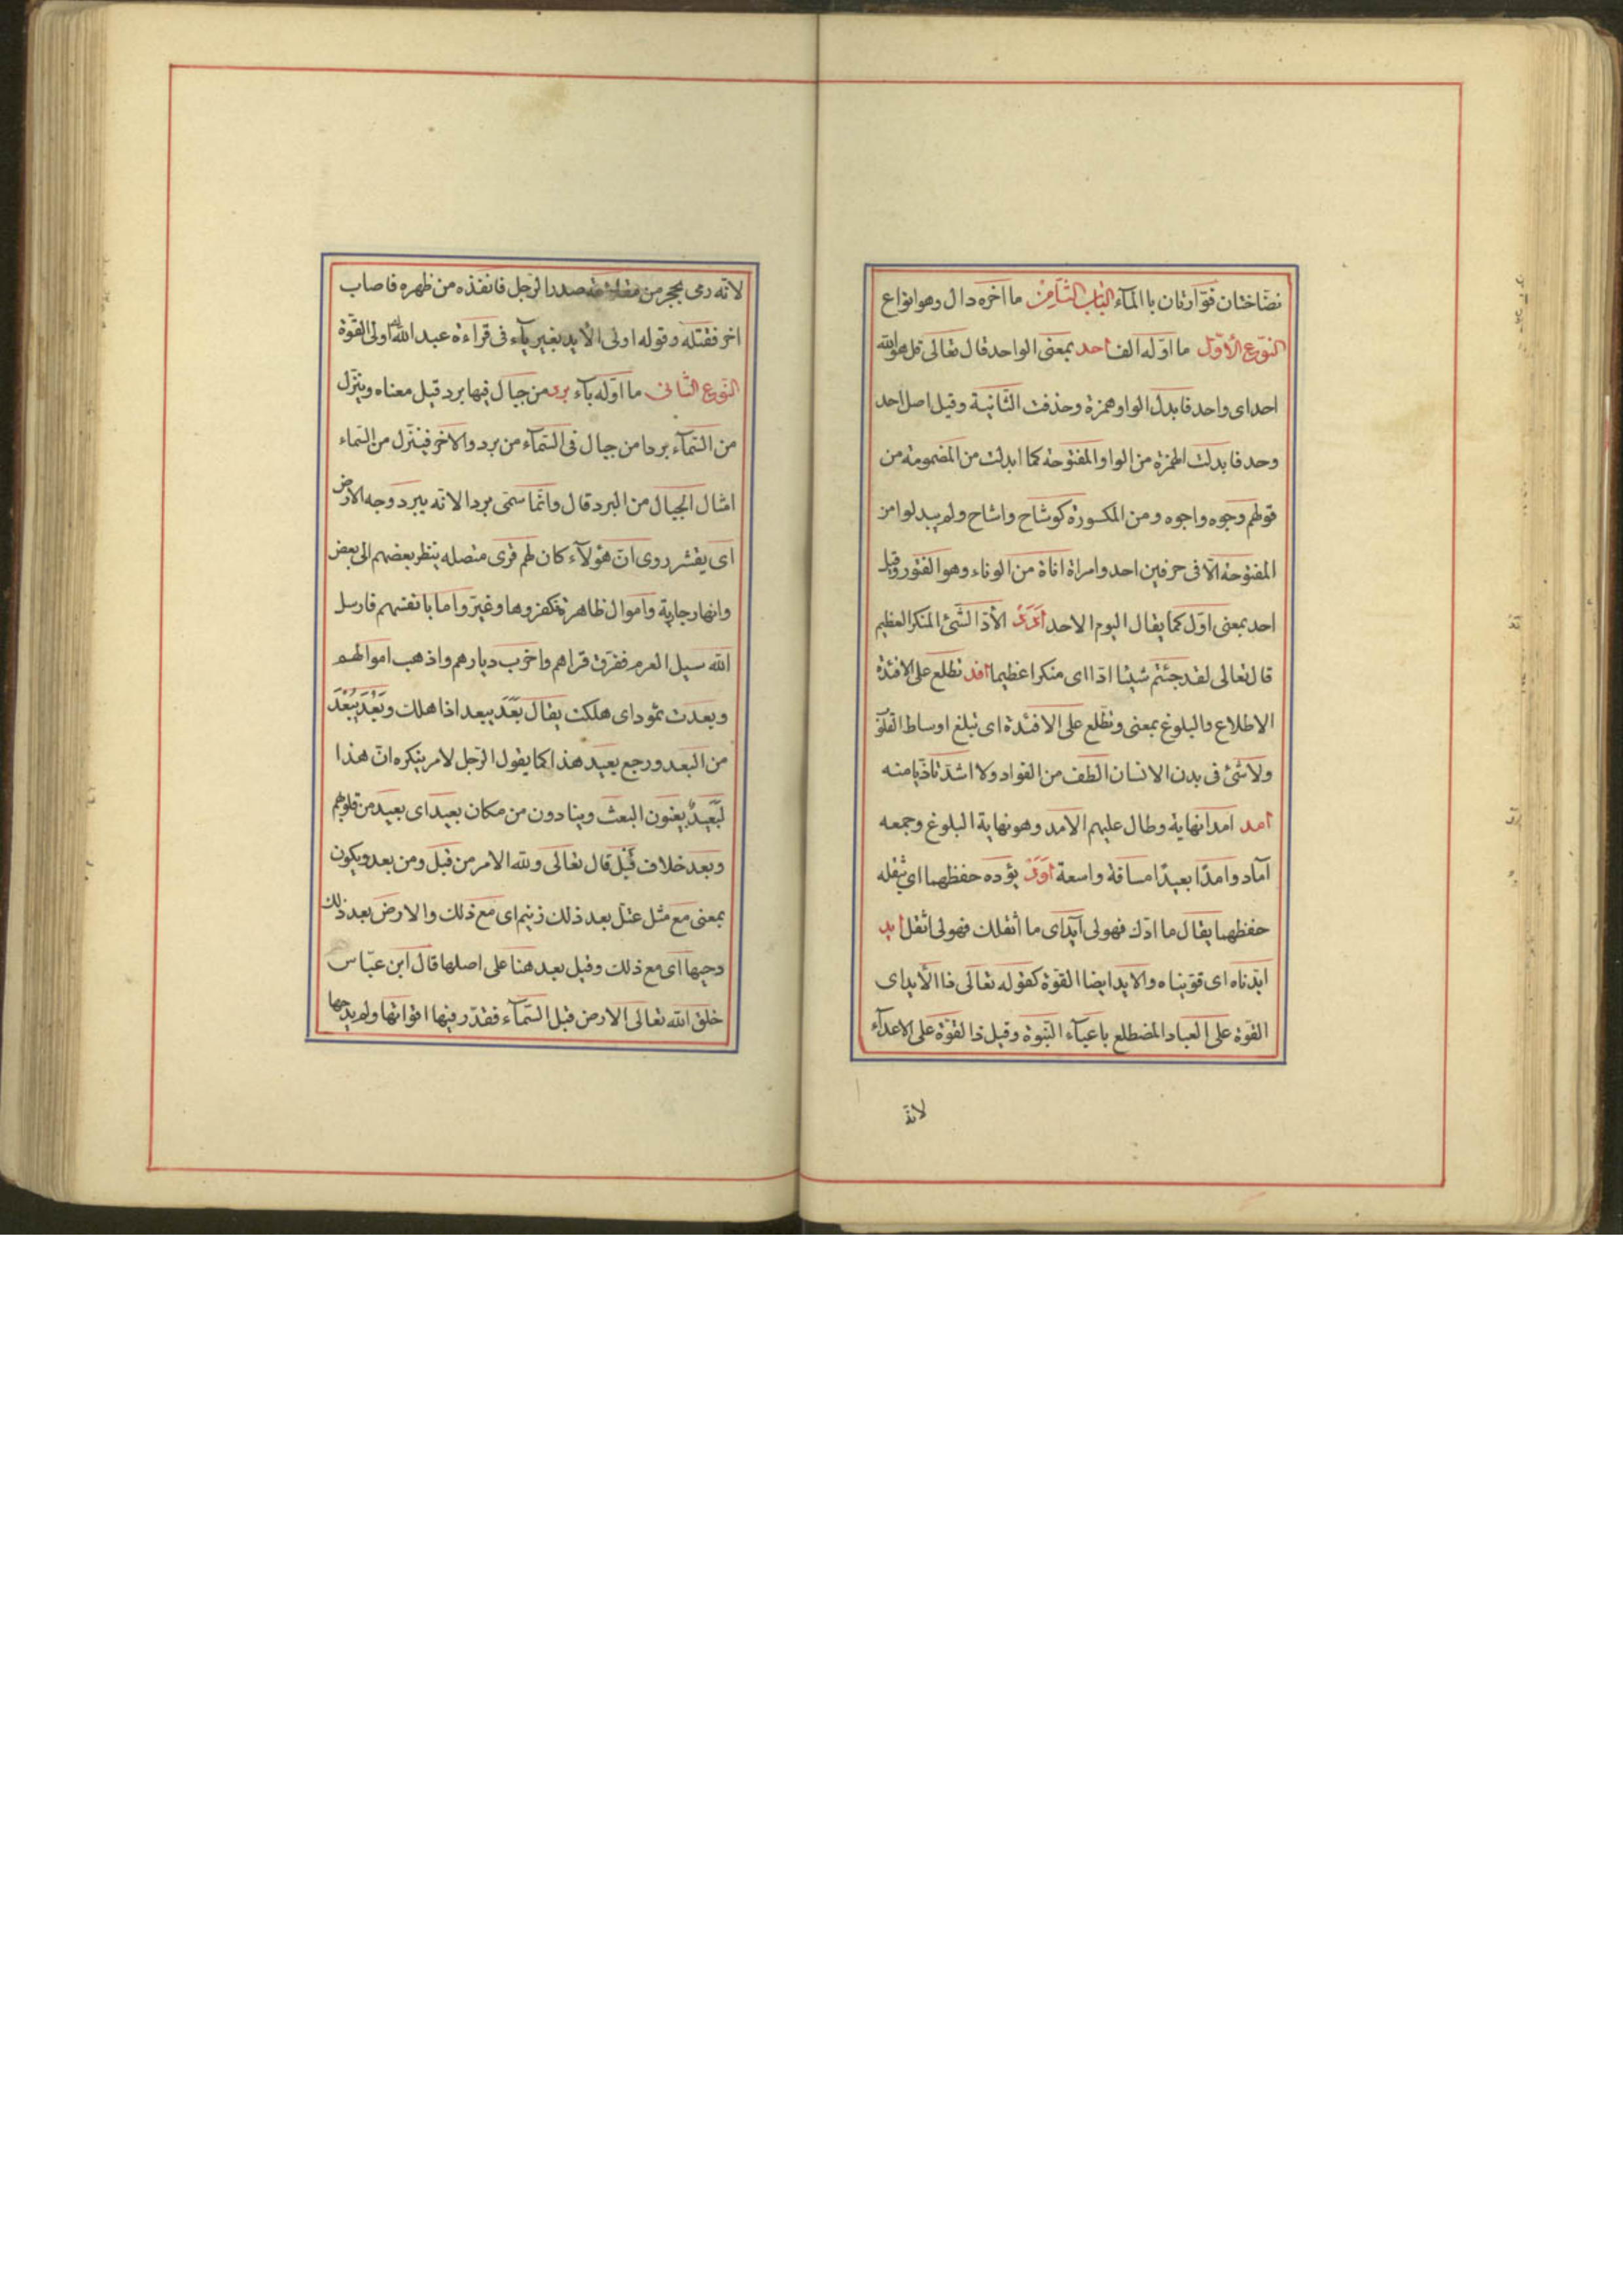 نضّاختان فوّارتان باالمآء الباب الثامن ما اخره دال وهو انواع
النوع الأوّل ما اوّله الف احد بمعنى الواحد قال تعالى قل هو الله
احد اى واحد فابدل الواو همزة وحذفت الثانية وقيل اصل احد
وحد فابدلت الهمزة من الواو المفتوحة كما ابدلت من المضمومة من
قولهم وجوه واجوه ومن المكسورة كوشاح واشاح ولم يبدلوا من
المفتوحة الّا فى حرفين احد وامراة اناة من الوناء وهو الفتور وقيل
احد بمعنى اوّل كما يقال اليوم الاحد الأدّ الشّئ المنكر العظيم
قال تعالى لقد جئتم شيئا ادّا اى منكرا عظيما افد تطلع على الافئدة
الاطلاع والبلوغ بمعنى وتطّلع على الافئدة اى تبلغ اوساط القلوب
ولا شئ فى بدن الانسان الطف من الفواد ولا اشدّ تاذّيا منه
امد امدا نهاية وطال عليهم الامد وهو نهاية البلوغ وجمعه
آماد وامدًا بعيدًا مسافة واسعة اود يؤده حفظهما اى يثقله
حفظهما يقال ما ادك فهو لى آيد اى ما أثقلك فهو لى اثقل ايد
ايّدناه اى قوّيناه والايد ايضا القوّة كقوله تعالى ذا الأيد اى
القوّة على العباد المضطلع باعبآء النّبوة وقيل ذا القوّة على الاعدآء
لانّه
لانّه رمى بحجر من صدر الرّجل فانفذه من ظهره فاصاب
اخر فقتله وقوله اولى الأيد بغير يآء فى قراءة عبد الله اولى القوّة
النّوع الثّانى ما اوّله بآء برد من جبال فيها برد قيل معناه وينزّل
من السّمآء بردا من جبال فى السّمآء من برد والاخر فينزّل من السّماء
امثال الجبال من البرد قال وانّما سمّى بردا لانّه يبرد وجه الارض
اى يقشر روى انّ هؤلآء كان لهم قرى متصله ينظر بعضهم الى بعض
وانهار جارية واموال ظاهرة فكفروها وغيّروا ما بانفسهم فارسل
الله سيل العرم ففرّق قراهم واخرب ديارهم واذهب اموالهم
وبعدت ثمود اى هلكت يقال بعد يبعد اذا هلك وبعد يبعد
من البعد ورجع بعيد هذا كما يقول الرّجل لامر ينكره انّ هذا
لبعيد يعنون البعث وينادون من مكان بعيد اى بعيد من قلوبهم
وبعد خلاف قبل قال تعالى ولله الامر من قبل ومن بعد ويكون
بمعنى مع مثل عتل بعد ذلك زنيم اى مع ذلك والارض بعد ذلك
دحيها اى مع ذلك وقيل بعد هنا على اصلها قال ابن عبّاس
خلق الله تعالى الارض قبل السّمآء فقدّر فيها اقواتها ولم يدحها